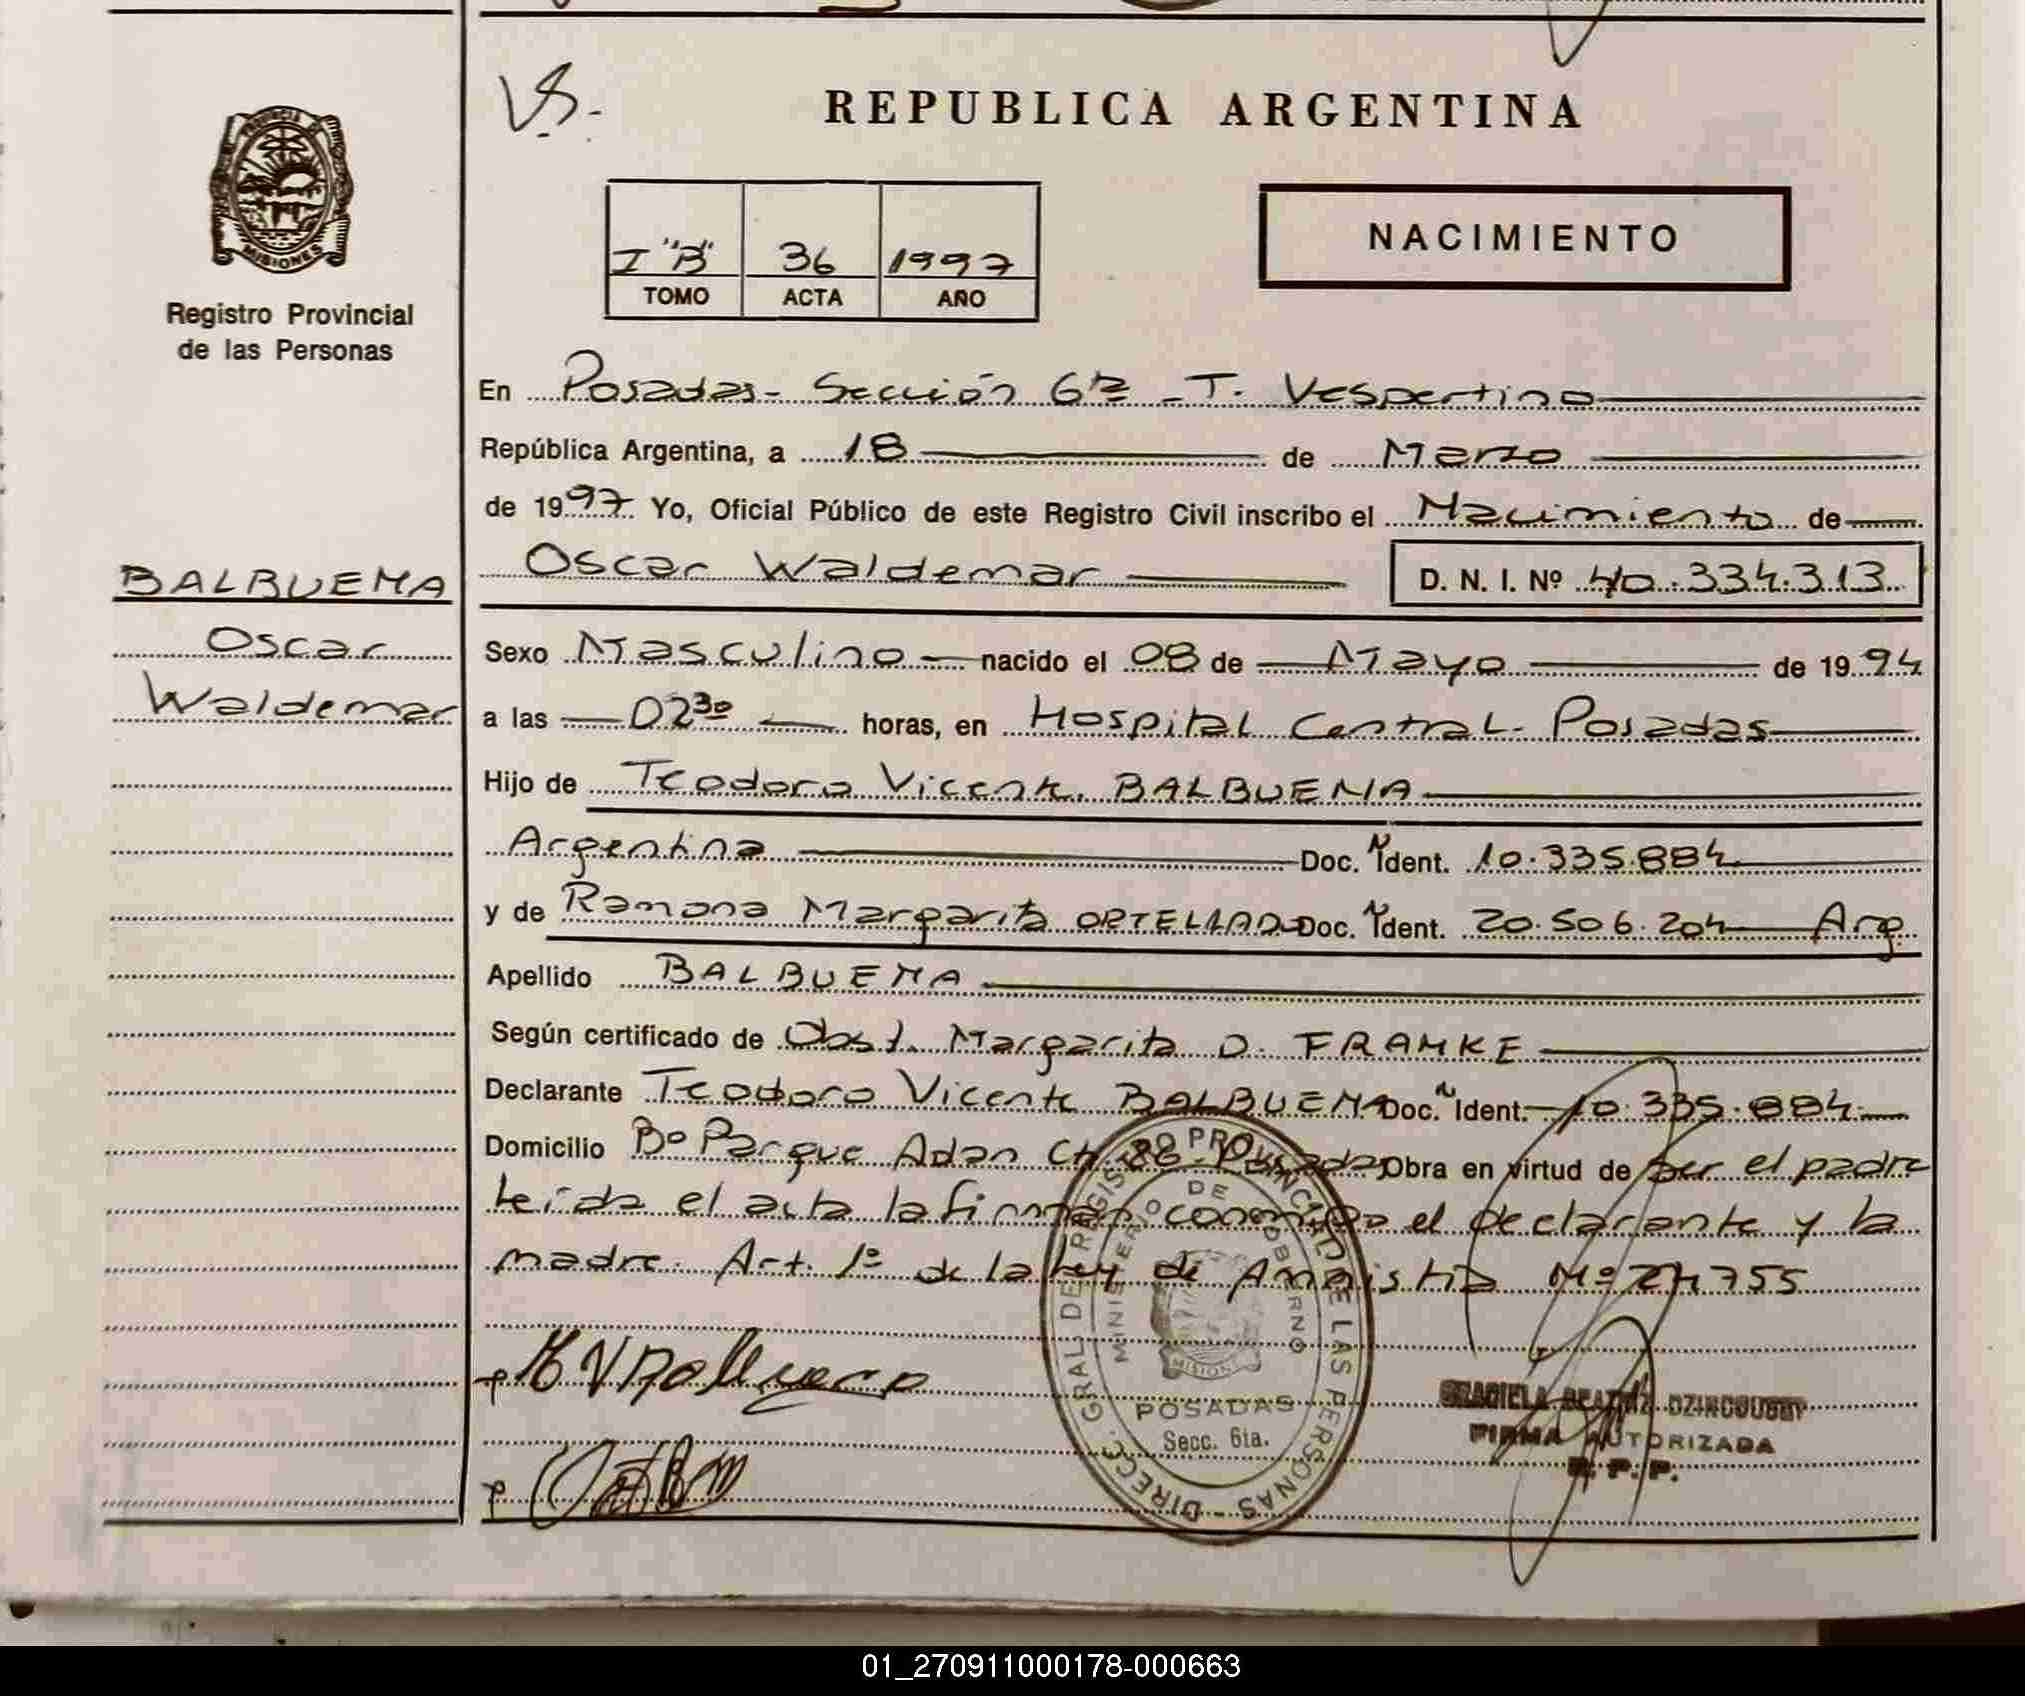 VS.-
REPUBLICA ARGENTINA
PROVINCIA DE
MISIONES
Registro Provincial
de las Personas
I "B" 36 1997
TOMO ACTA AÑO
NACIMIENTO
En Posadas- Sección 6ta - T. Vespertino
República Argentina, a 18 de Marzo
de 1997 Yo, Oficial Público de este Registro Civil inscribo el Nacimiento de
BALBUENA
Oscar Waldemar D. N. I. Nº 40.334.313
Oscar
Sexo Masculino nacido el 08 de Mayo de 1994
Waldemar
a las 02³⁰ horas, en Hospital Central- Posadas
Hijo de Teodoro Vicente BALBUENA
Argentina Doc. N Ident. 10.335.884
y de Ramona Margarita ORTELLADO Doc. N Ident. 20.506.204 Arg
Apellido BALBUENA
Según certificado de Obst. Margarita D. FRANKE
Declarante Teodoro Vicente BALBUENA Doc. N Ident. 10.335.884
Domicilio Bº Parque Adan Ch 88- Posadas Obra en virtud de ser el padre
leída el acta la firman conmigo el declarante y la
madre. Art. 1º de la Ley de Amnistia Nº 24755
DIRECC. GRAL. DE REGISTRO PROVINCIAL DE LAS PERSONAS
MINISTERIO DE GOBIERNO
MISIONES
POSADAS
Secc. 6ta.
GRACIELA BEATRIZ
FIRMA AUTORIZADA
R. P. P.
01_270911000178-000663